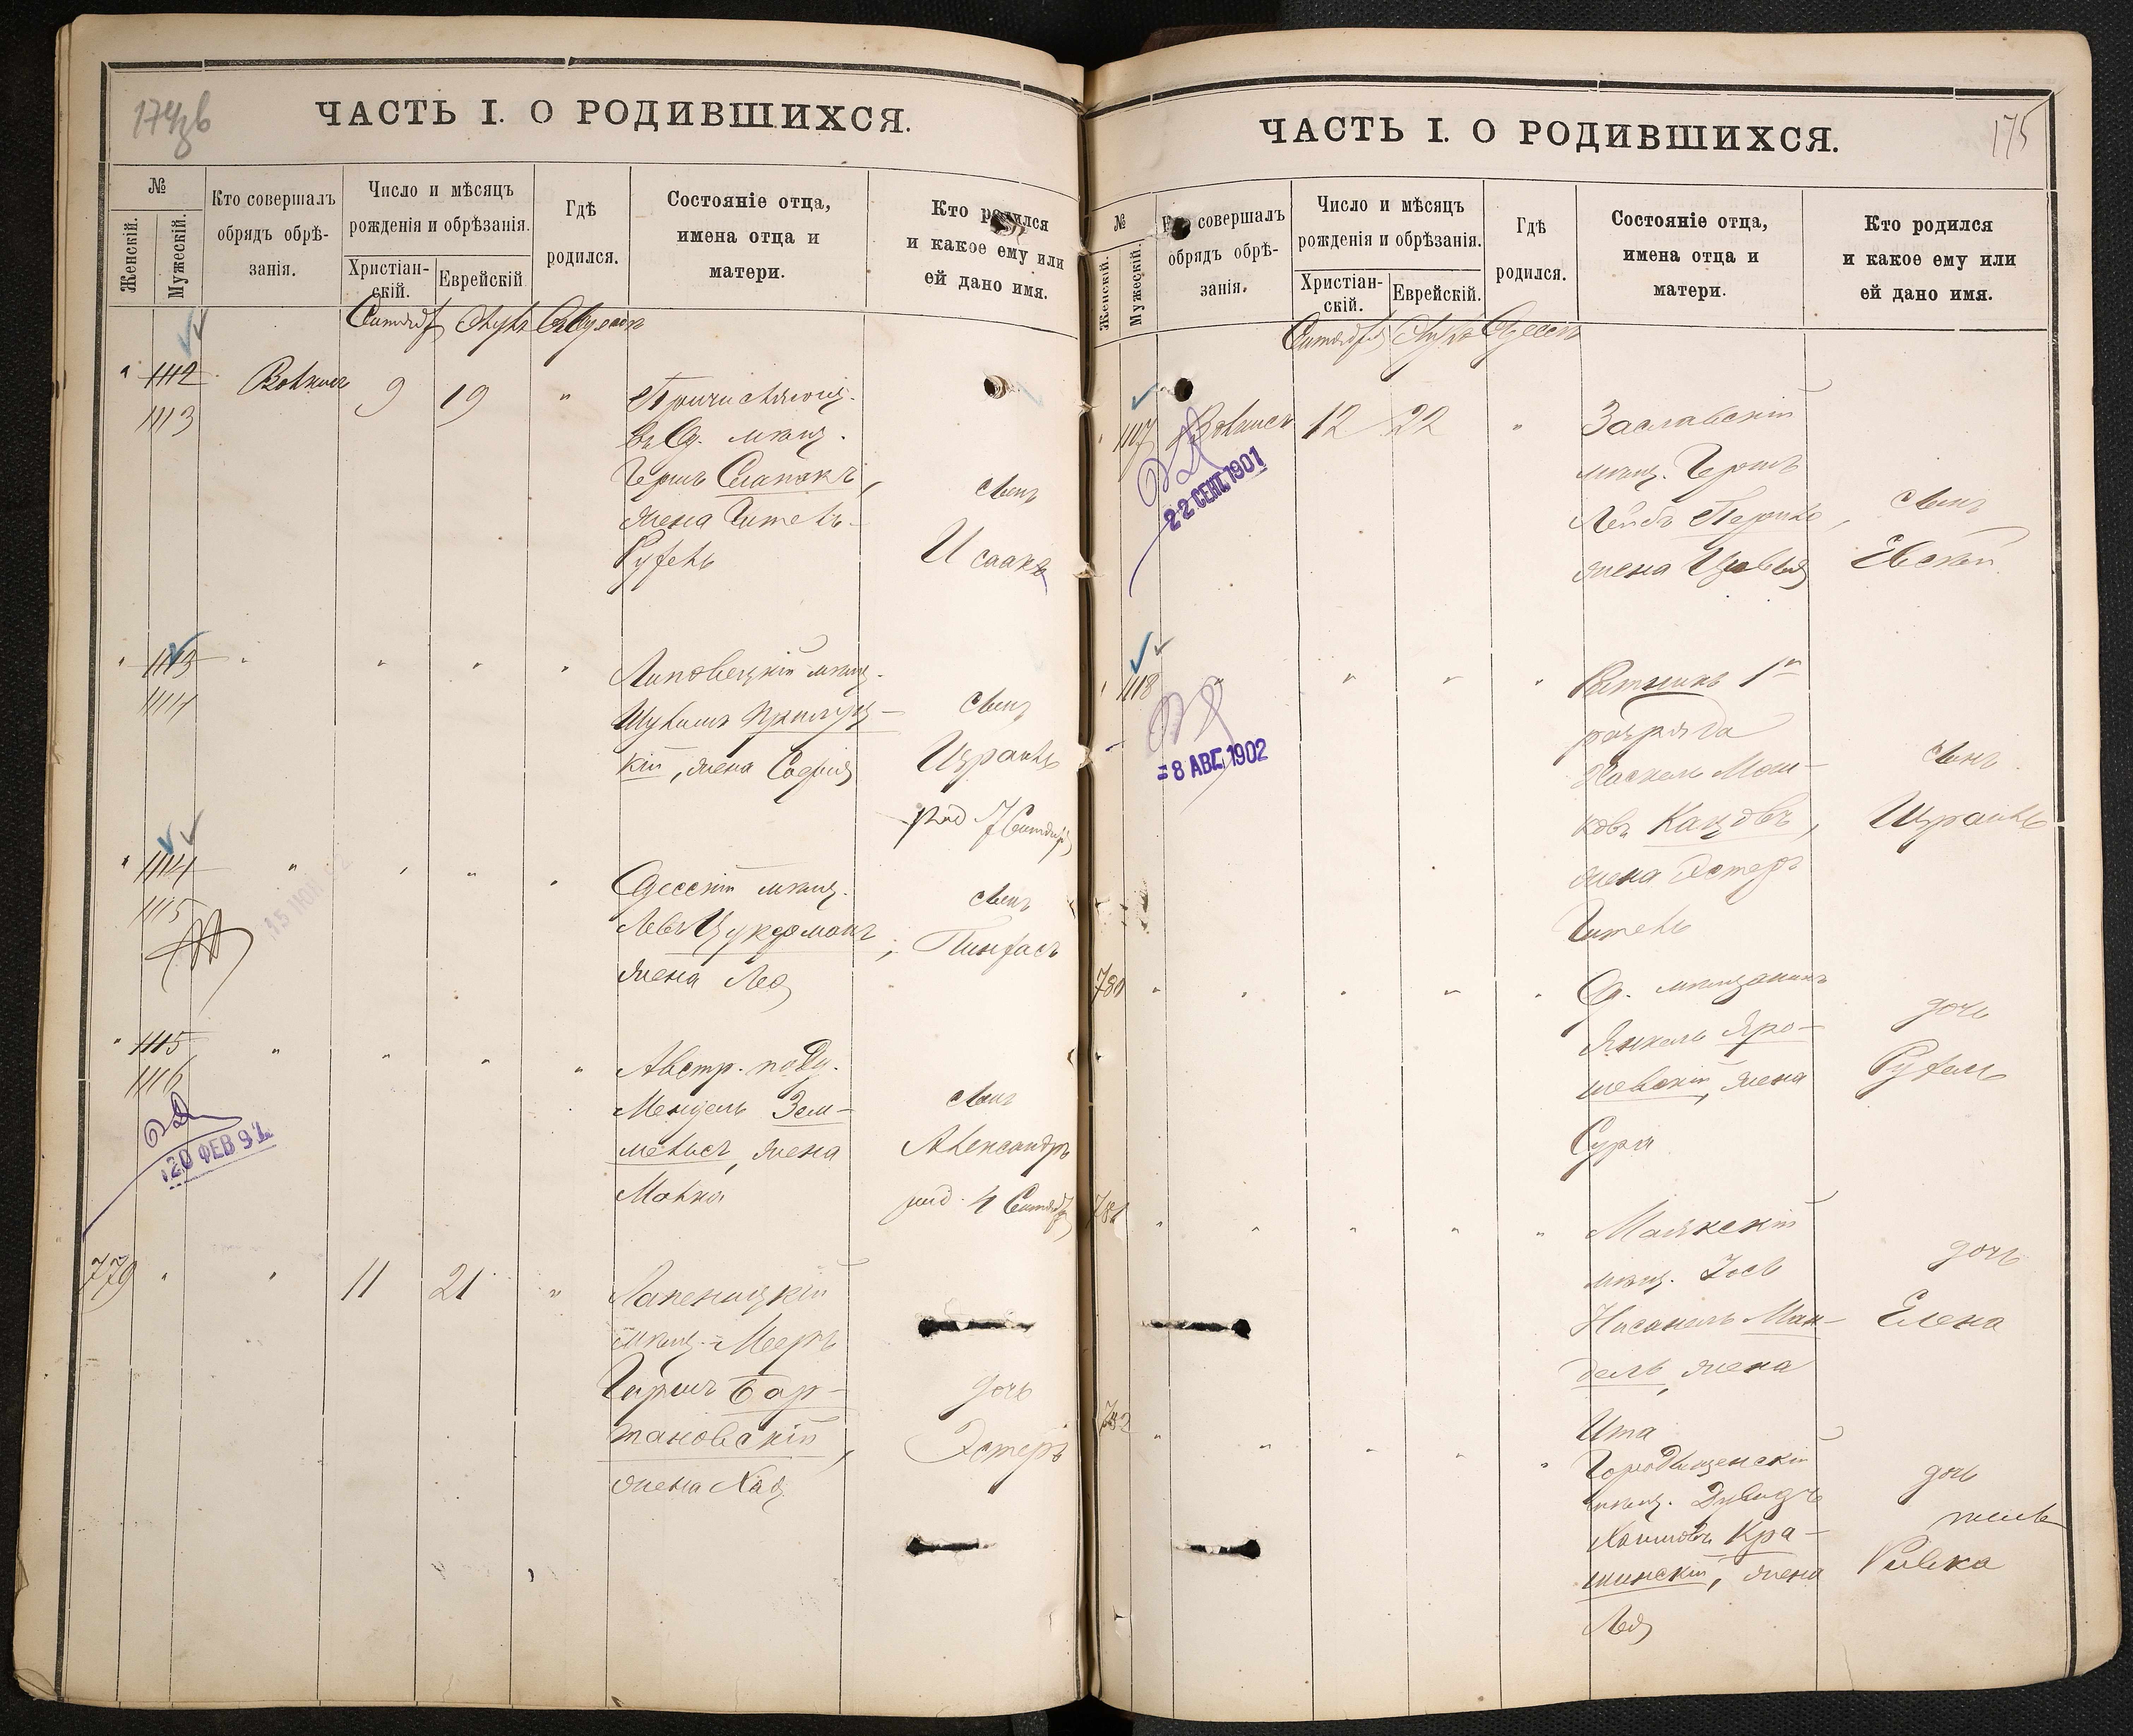 174об
ЧАСТЬ I. О РОДИВШИХСЯ.
№
Женскій.
Мужескій.
Кто совершалъ
обрядъ обрѣ-
занія.
Число и мѣсяцъ
рожденія и обрѣзанія.
Христіан-
скій.
Еврейскій
Гдѣ
родился.
Состояніе отца,
имена отца и
матери.
Кто родился
и какое ему или
ей дано имя.
1112
1113
9
19
"
Причисляющ.
въ Од. мѣщ.
Гершъ Слапакъ,
жена Гитель-
Рухель
сынъ
Исаакъ
1113
1114
"
"
"
"
Липовецкій мѣщ.
Шулимъ Прилуц-
кій, жена Софія
сынъ
Израиль
род 7 Сентября
1114
1115
"
"
"
"
15 ИЮЛ
Одесскій мѣщ.
Левъ Цукерманъ,
жена Лея
сынъ
Пинхасъ
1115
1116
"
"
"
"
20 ФЕВ 9
Австр. подд.
Мендель Зем-
мельсъ, жена
Малка
сынъ
Александръ
род. 4 Сентября
779
"
"
11
21
"
мѣщ. Мееръ
Гершъ Бар-
тановскій,
жена Хая
дочь
Эстеръ
175
ЧАСТЬ I. О РОДИВШИХСЯ.
№
Женскій.
Мужескій.
Кто совершалъ
обрядъ обрѣ-
занія.
Число и мѣсяцъ
рожденія и обрѣзанія.
Христіан-
скій.
Еврейскій.
Гдѣ
родился.
Состояніе отца,
имена отца и
матери.
Кто родился
и какое ему или
ей дано имя.
1117
12
22
"
22 СЕНТ. 1901
Заславскій
мѣщ. Гершъ
Лейбъ
жена
сынъ
Евсей
1118
"
"
"
"
= 8 АВГ. 1902
1го
разряда
Хаскель Мош-
ковъ Кацовъ,
жена Эстеръ
Гитель
сынъ
Израиль
780
"
"
"
"
"
Од. мѣщанинъ
Янкель Яро-
шевскій, жена
Сура
дочь
Рухель
781
"
"
"
"
"
Маякскій
мѣщ. Іось
Нисанель Ман-
дель, жена
Ита
дочь
Елена
782
"
"
"
"
"
Городищенскій
мѣщ. Дувидъ
Хаимовъ Кра-
шинскій, жена
Лея
дочь
Ривка